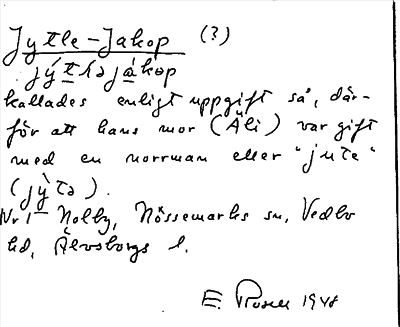 Jytle-Jakop (?)
jýtləjàkòp
kallades enligt uppgift så, där-
för att hans mor (Äli) var gift
med en norrman eller "jute"
(jỳtə).
Nr 1 Nolby, Nössemarks sn, Vedbo
hd, Älvsborgs l.
E. 1948